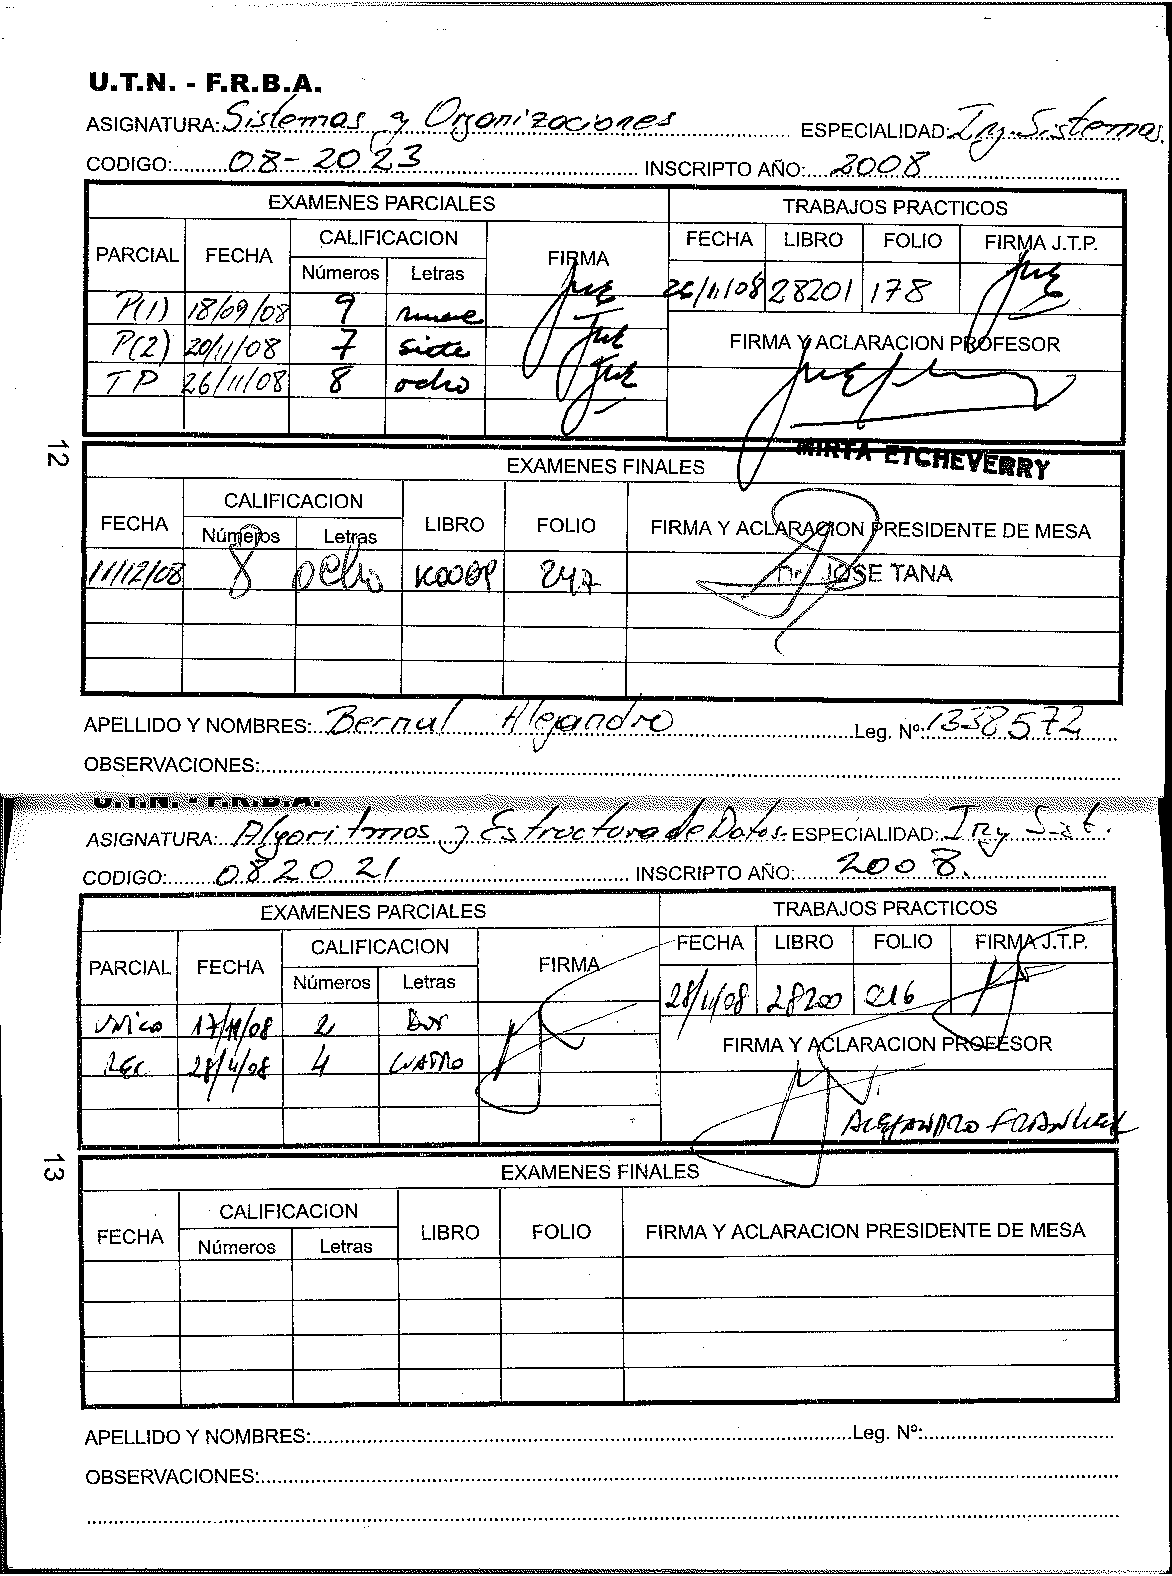 U.T.N. - F.R.B.A.
ASIGNATURA: Sistemas y Organizaciones ESPECIALIDAD: Ing. Sistemas.
CODIGO: 08-2023 INSCRIPTO AÑO: 2008
EXAMENES PARCIALES TRABAJOS PRACTICOS
PARCIAL FECHA CALIFICACION FIRMA FECHA LIBRO FOLIO FIRMA J.T.P.
Números Letras
26/11/08 28201 178
P(1) 18/09/08 9 nueve
P(2) 20/11/08 7 siete FIRMA Y ACLARACION PROFESOR
TP 26/11/08 8 ocho
MIRTA ETCHEVERRY
12
EXAMENES FINALES
FECHA CALIFICACION LIBRO FOLIO FIRMA Y ACLARACION PRESIDENTE DE MESA
Números Letras
11/12/08 8 ocho 247 Dr. JOSE TANA
APELLIDO Y NOMBRES: Bernal Alejandro Leg. Nº: 1338572
OBSERVACIONES:
U.T.N. - F.R.B.A.
ASIGNATURA: Algoritmos y Estructura de Datos. ESPECIALIDAD: Ing Sist.
CODIGO: 082021 INSCRIPTO AÑO: 2008.
EXAMENES PARCIALES TRABAJOS PRACTICOS
PARCIAL FECHA CALIFICACION FIRMA FECHA LIBRO FOLIO FIRMA J.T.P.
Números Letras
28/11/08 28200 216
UNICO 17/11/08 2 DOS
REC 28/11/08 4 CUATRO FIRMA Y ACLARACION PROFESOR
ALEJANDRO FRANKEL
13
EXAMENES FINALES
FECHA CALIFICACION LIBRO FOLIO FIRMA Y ACLARACION PRESIDENTE DE MESA
Números Letras
APELLIDO Y NOMBRES: Leg. Nº:
OBSERVACIONES: